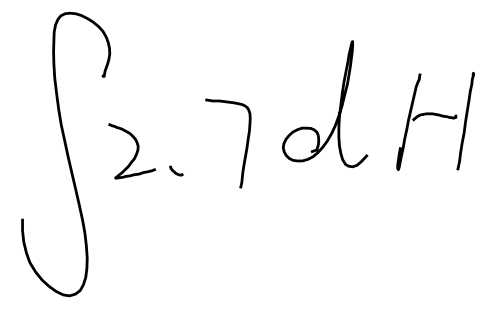 ∫2.7dH